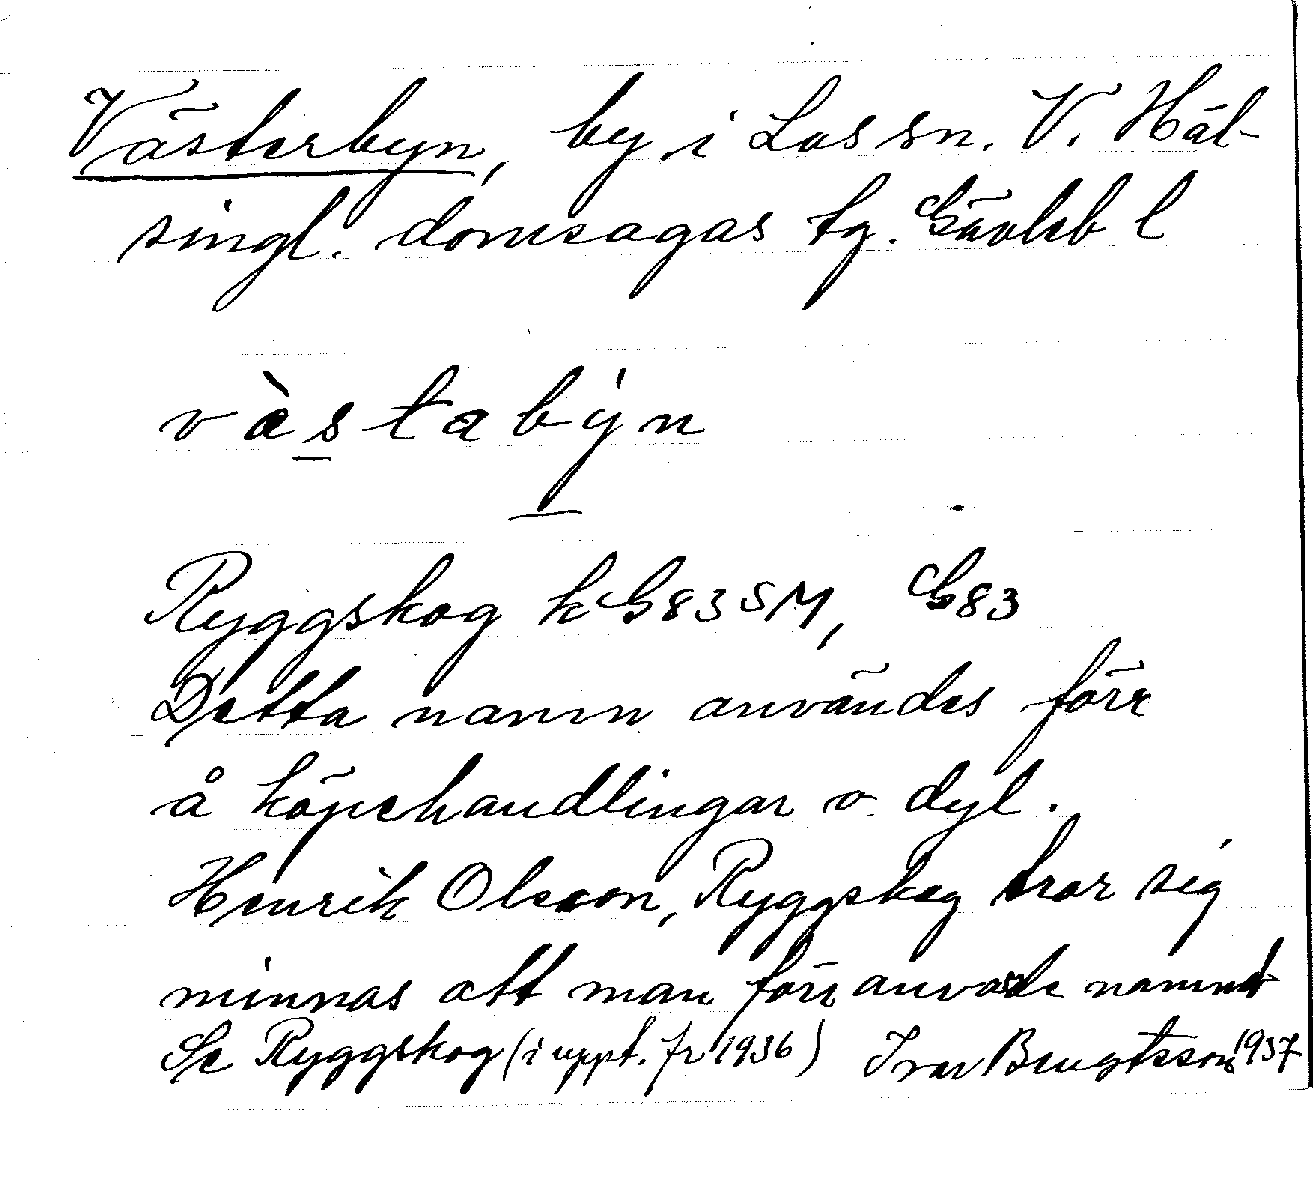 Västerbyn, by i Los sn. V. Häl-
singl. domsagas tg. Gävleb l
vàstabýn
Ryggskog k G83 SM, G83
Detta namn användes förr
å köpehandlingar o dyl.
Henrik Olsson, Ryggskog tror sig
minnas att man förr använde namnet
Se Ryggskog (i uppt. fr 1936) Ivar Bengtsson 1937